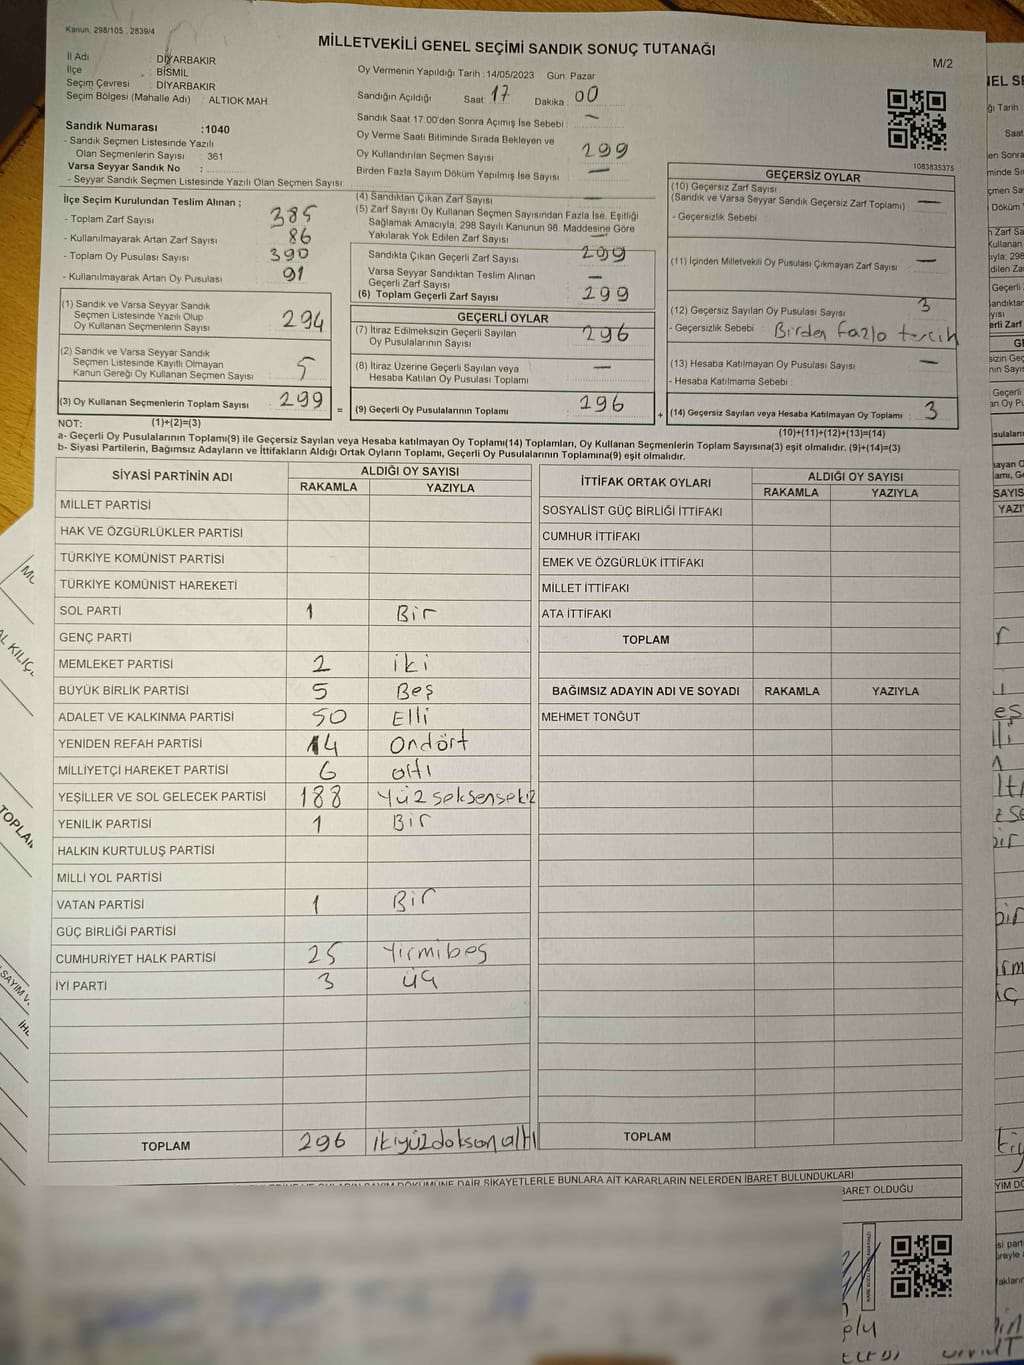 Kanun. 298/105 , 2839/4
MİLLETVEKİLİ GENEL SEÇİMİ SANDIK SONUÇ TUTANAĞI
M/2
İl Adı : DİYARBAKIR
İlçe : BİSMİL
Seçim Çevresi : DİYARBAKIR
Seçim Bölgesi (Mahalle Adı) : ALTIOK MAH.
Sandık Numarası :1040
- Sandık Seçmen Listesinde Yazılı
Olan Seçmenlerin Sayısı : 361
Varsa Seyyar Sandık No :
- Seyyar Sandık Seçmen Listesinde Yazılı Olan Seçmen Sayısı:
Oy Vermenin Yapıldığı Tarih : 14/05/2023 Gün: Pazar
Sandığın Açıldığı Saat: 17 Dakika : 00
Sandık Saat 17.00'den Sonra Açımış İse Sebebi : —
Oy Verme Saati Bitiminde Sırada Bekleyen ve
Oy Kullandırılan Seçmen Sayısı 299
Birden Fazla Sayım Döküm Yapılmış İse Sayısı —
1083835375
İlçe Seçim Kurulundan Teslim Alınan ;
- Toplam Zarf Sayısı 385
- Kullanılmayarak Artan Zarf Sayısı 86
- Toplam Oy Pusulası Sayısı 390
- Kullanılmayarak Artan Oy Pusulası 91
(1) Sandık ve Varsa Seyyar Sandık
Seçmen Listesinde Yazılı Olup
Oy Kullanan Seçmenlerin Sayısı 294
(2) Sandık ve Varsa Seyyar Sandık
Seçmen Listesinde Kayıtlı Olmayan
Kanun Gereği Oy Kullanan Seçmen Sayısı 5
(3) Oy Kullanan Seçmenlerin Toplam Sayısı 299 =
(1)+(2)=(3)
(4) Sandıktan Çıkan Zarf Sayısı —
(5) Zarf Sayısı Oy Kullanan Seçmen Sayısından Fazla İse, Eşitliği
Sağlamak Amacıyla, 298 Sayılı Kanunun 98. Maddesine Göre
Yakılarak Yok Edilen Zarf Sayısı —
Sandıkta Çıkan Geçerli Zarf Sayısı 299
Varsa Seyyar Sandıktan Teslim Alınan
Geçerli Zarf Sayısı —
(6) Toplam Geçerli Zarf Sayısı 299
GEÇERLİ OYLAR
(7) İtiraz Edilmeksizin Geçerli Sayılan
Oy Pusulalarının Sayısı 296
(8) İtiraz Üzerine Geçerli Sayılan veya
Hesaba Katılan Oy Pusulası Toplamı —
(9) Geçerli Oy Pusulalarının Toplamı 296 +
GEÇERSİZ OYLAR
(10) Geçersiz Zarf Sayısı
(Sandık ve Varsa Seyyar Sandık Geçersiz Zarf Toplamı) —
- Geçersizlik Sebebi :
(11) İçinden Milletvekili Oy Pusulası Çıkmayan Zarf Sayısı —
(12) Geçersiz Sayılan Oy Pusulası Sayısı 3
- Geçersizlik Sebebi : Birden fazla tercih
(13) Hesaba Katılmayan Oy Pusulası Sayısı —
- Hesaba Katılmama Sebebi :
(14) Geçersiz Sayılan veya Hesaba Katılmayan Oy Toplamı 3
(10)+(11)+(12)+(13)=(14)
NOT:
a- Geçerli Oy Pusulalarının Toplamı(9) ile Geçersiz Sayılan veya Hesaba katılmayan Oy Toplamı(14) Toplamları, Oy Kullanan Seçmenlerin Toplam Sayısına(3) eşit olmalıdır. (9)+(14)=(3)
b- Siyasi Partilerin, Bağımsız Adayların ve İttifakların Aldığı Ortak Oyların Toplamı, Geçerli Oy Pusulalarının Toplamına(9) eşit olmalıdır.
SİYASİ PARTİNİN ADI ALDIĞI OY SAYISI
RAKAMLA YAZIYLA
MİLLET PARTİSİ
HAK VE ÖZGÜRLÜKLER PARTİSİ
TÜRKİYE KOMÜNİST PARTİSİ
TÜRKİYE KOMÜNİST HAREKETİ
SOL PARTİ 1 Bir
GENÇ PARTİ
MEMLEKET PARTİSİ 2 iki
BÜYÜK BİRLİK PARTİSİ 5 Beş
ADALET VE KALKINMA PARTİSİ 50 Elli
YENİDEN REFAH PARTİSİ 14 Ondört
MİLLİYETÇİ HAREKET PARTİSİ 6 altı
YEŞİLLER VE SOL GELECEK PARTİSİ 188 Yüzseksensekiz
YENİLİK PARTİSİ 1 Bir
HALKIN KURTULUŞ PARTİSİ
MİLLİ YOL PARTİSİ
VATAN PARTİSİ 1 Bir
GÜÇ BİRLİĞİ PARTİSİ
CUMHURİYET HALK PARTİSİ 25 Yirmibeş
İYİ PARTİ 3 üç
TOPLAM 296 ikiyüzdoksanaltı
İTTİFAK ORTAK OYLARI ALDIĞI OY SAYISI
RAKAMLA YAZIYLA
SOSYALİST GÜÇ BİRLİĞİ İTTİFAKI
CUMHUR İTTİFAKI
EMEK VE ÖZGÜRLÜK İTTİFAKI
MİLLET İTTİFAKI
ATA İTTİFAKI
TOPLAM
BAĞIMSIZ ADAYIN ADI VE SOYADI RAKAMLA YAZIYLA
MEHMET TONĞUT
TOPLAM
DÖKÜMÜNE DAİR ŞİKAYETLERLE BUNLARA AİT KARARLARIN NELERDEN İBARET BULUNDUKLARI
BARET OLDUĞU